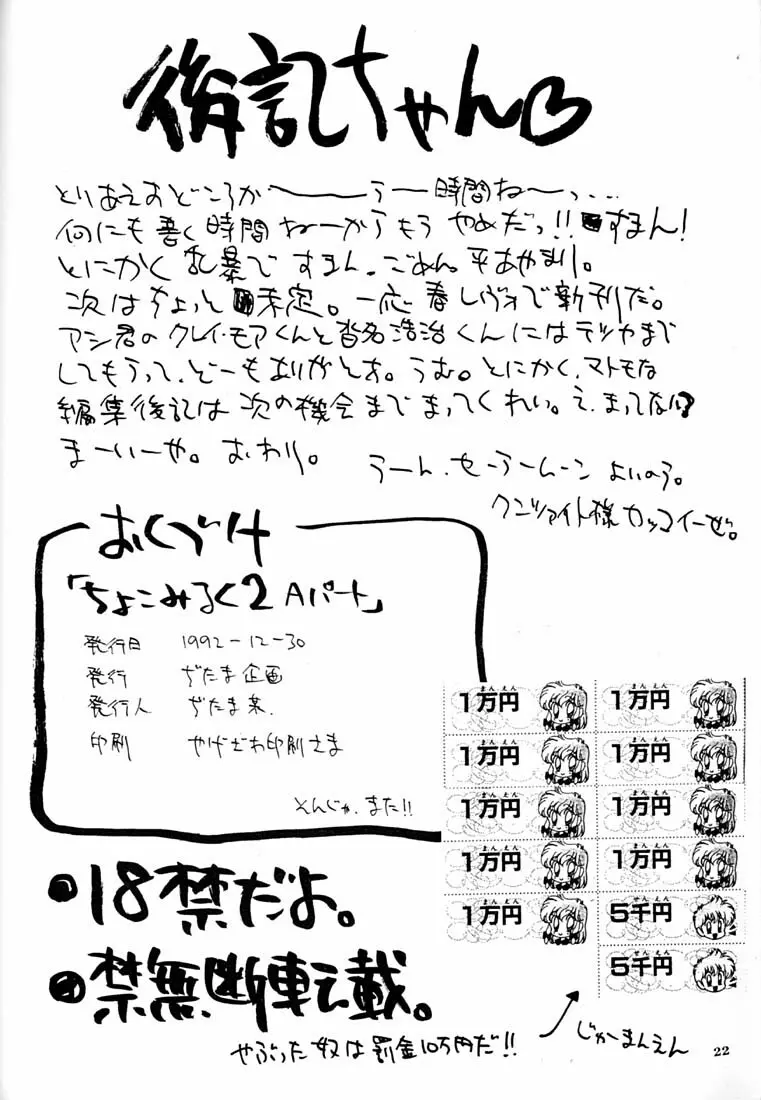 後記ちゃん♡
とりあえおどころか〜うー時間ねーっ…
何にも書く時間ねーからもうやめだっ!!すまん!
とにかく乱暴ですまん、ごめん。平あやまり。
次はちょっと未定。一応春レヴォで新刊だ。
アシ君のクレイ・モアくんと沓名浩治くんにはテツヤまで
してもらって、どーもありがとお。うむ。とにかく、マトモな
編集後記は次の機会までまってくれい。え、まってない?
まーいーや。おわり。
うーん、セーラームーンよいのう。
クンツァイト様カッコイーぜ。
おくづけ
「ちょこみるく2 Aパート」
発行日 1992-12-30
発行 ぢたま企画
発行人 ぢたま某.
印刷 やげざわ印刷さま
そんじゃ、また!!
1万円 まんえん 1万円 まんえん
1万円 まんえん 1万円 まんえん
1万円 まんえん 1万円 まんえん
1万円 まんえん 1万円 まんえん
1万円 まんえん 5千円 せんえん
5千円 せんえん
18禁だよ。
禁無断転載。
やぶった奴は罰金10万円だ!!
じゅーまんえん
22